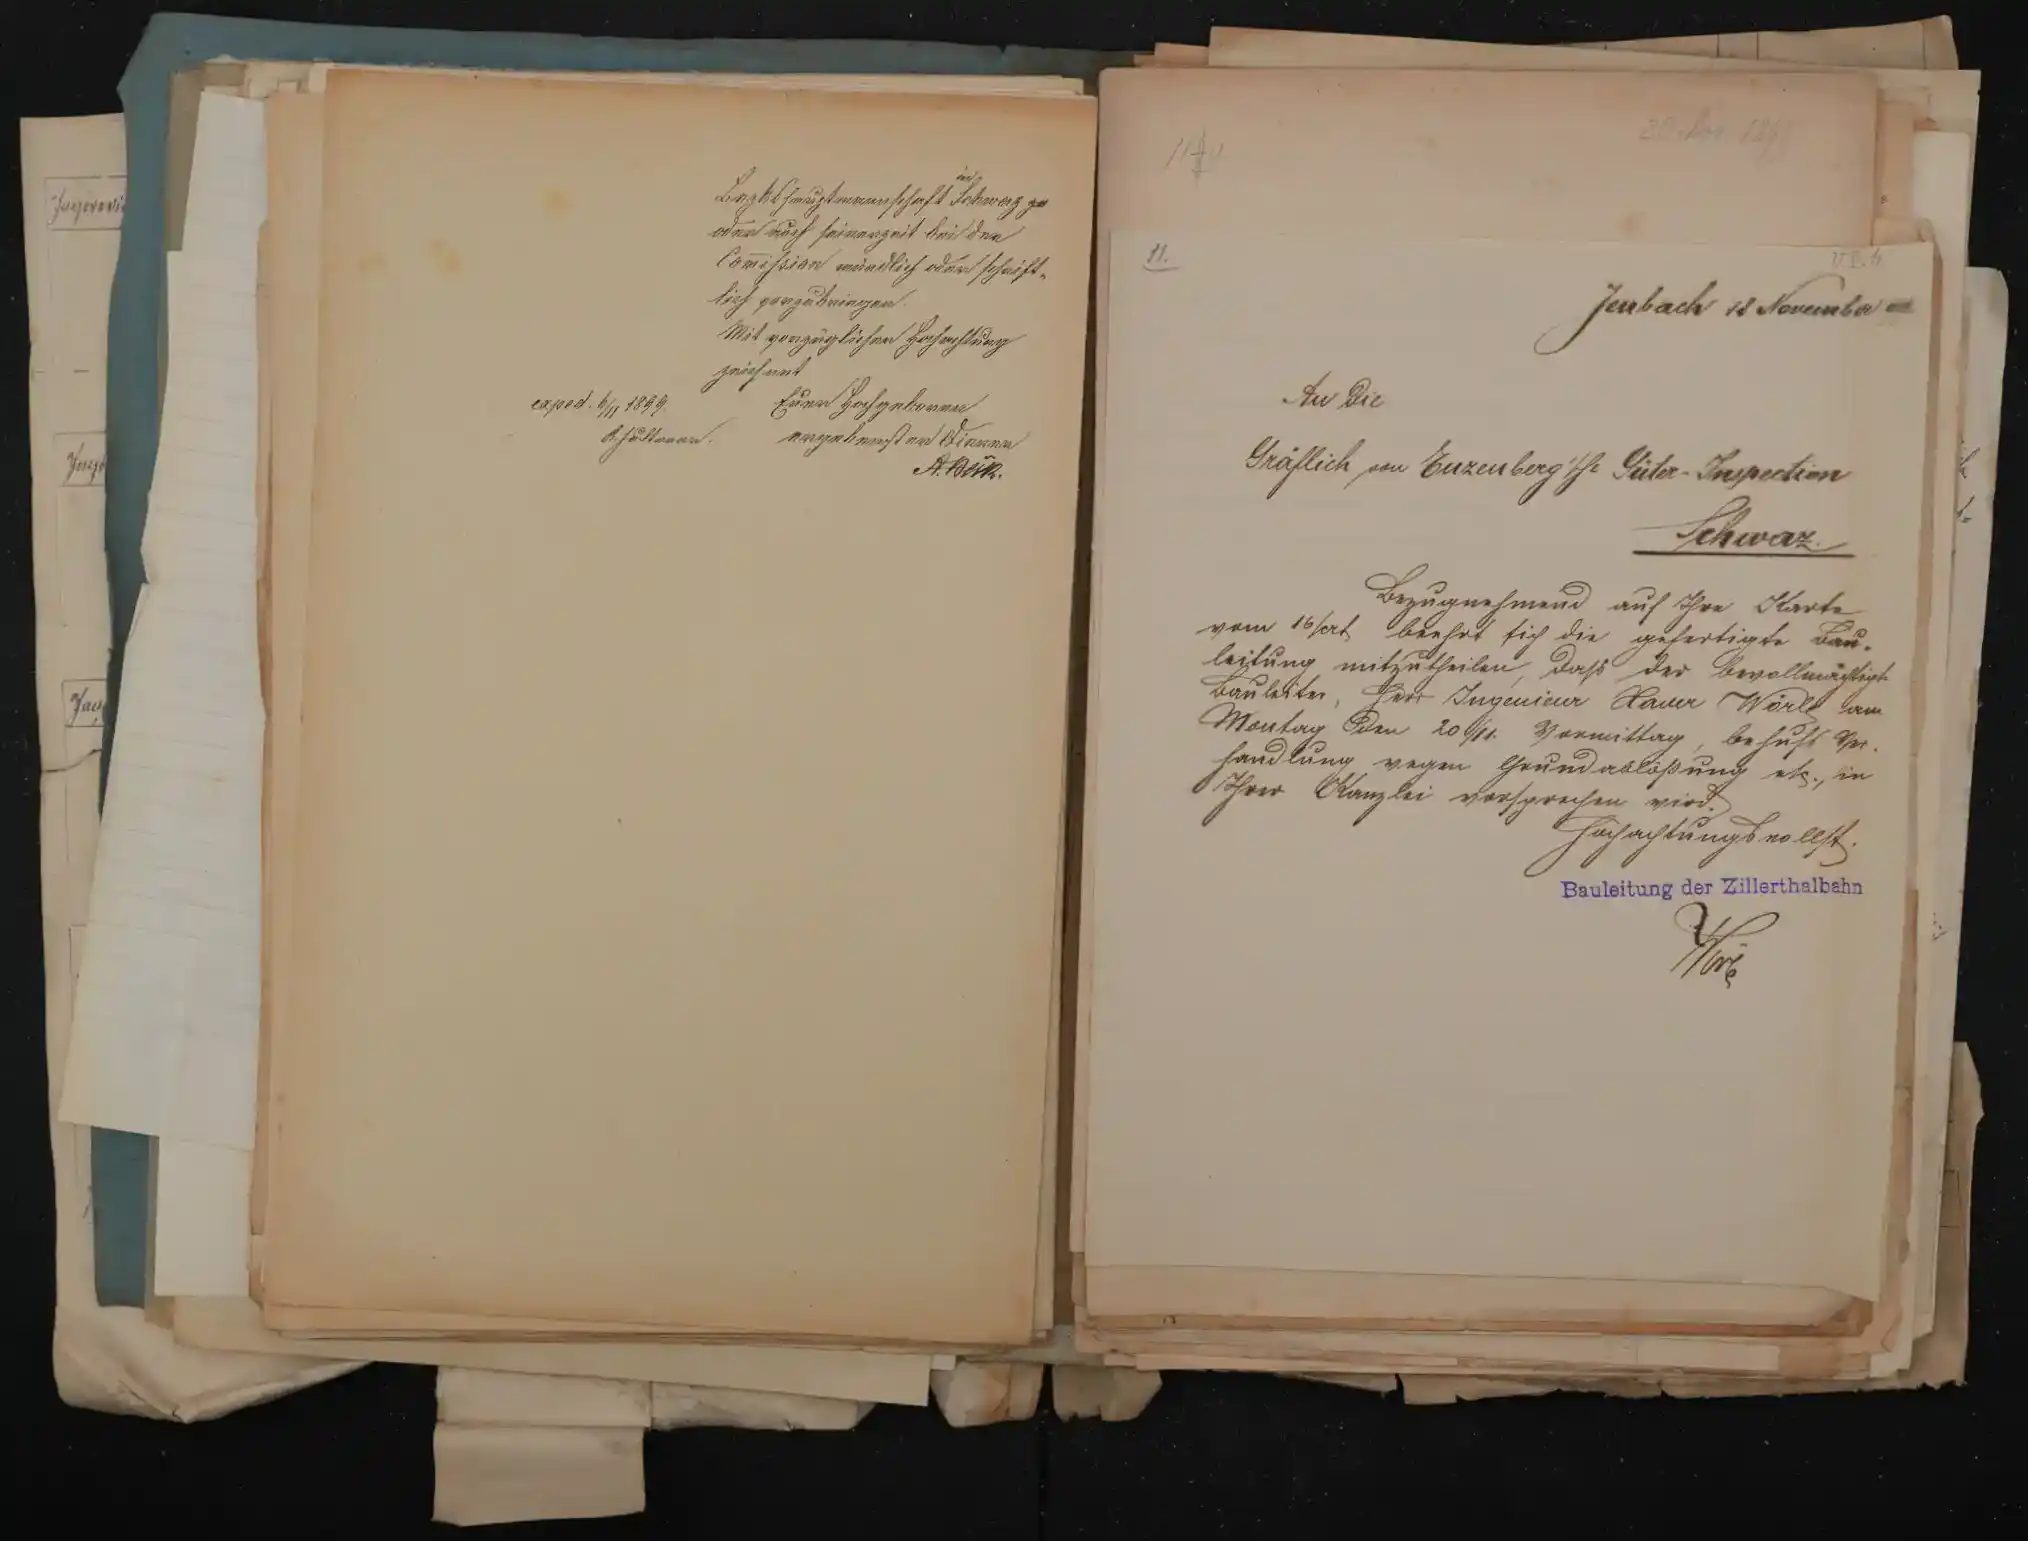 in
Bezkshauptmannschaft Schwaz zu
oder auch seinerzeit bei der
Com̄ission mündlich oder schrift-
lich vorzubringen.
Mit vorzüglicher Hochachtung
zeichnet
Euer Hochgeboren
ergebenster Diener
exped. 6/11 1899.
11.
Jenbach 18 November
An Die
Gräflich von Enzenberg'sche Güter-Inspection
Schwaz.
Bezugnehmend auf Ihre Karte
vom 16/crt. beehrt sich die gefertigte Bau-
leitung mitzutheilen, daß der bevollmächtigte
Bauleiter, Herr Ingenieur Xaver Wörle am
Montag den 20/11. Vormittag, behufs Ver-
handlung wegen Grundablößung etc., in
Ihrer Kanzlei vorsprechen wird.
Hochachtungsvollst.
Bauleitung der Zillerthalbahn